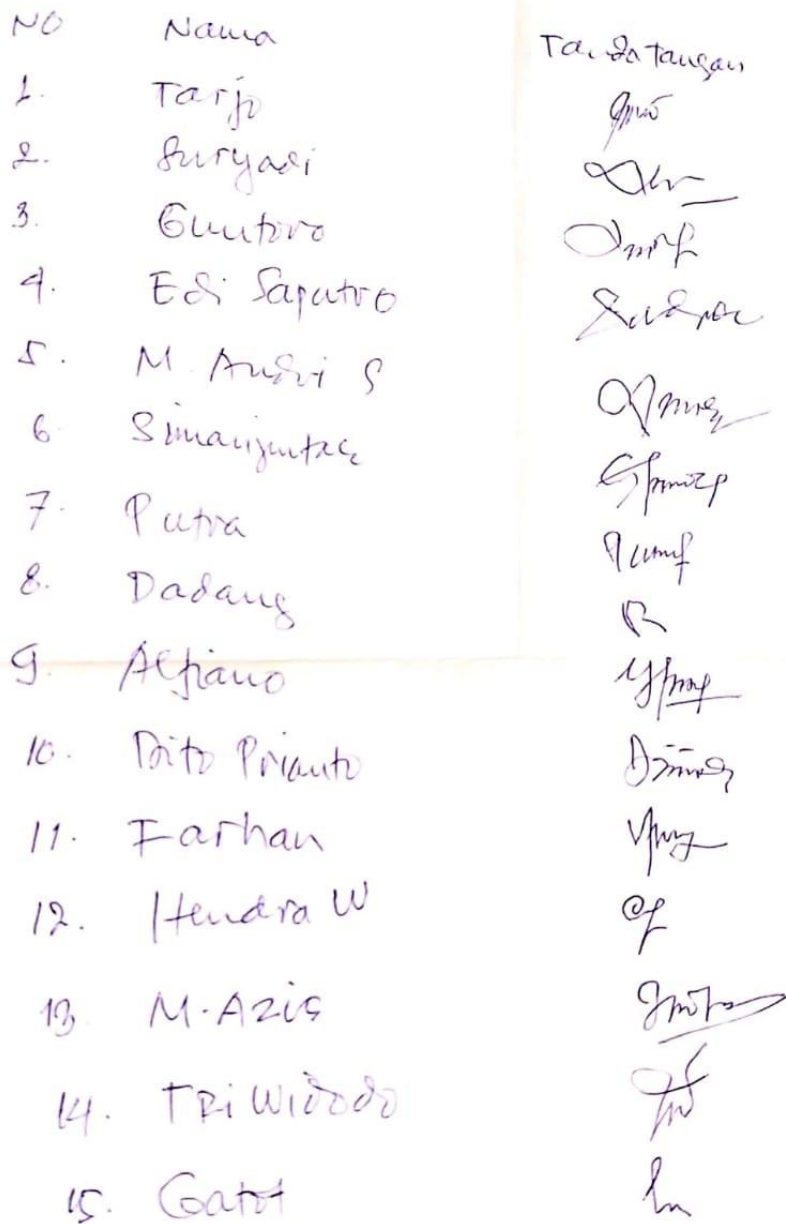 NO Nama Tanda tangan
1. Tarjo
2. Suryadi
3. Guntoro
4. Edi Saputro
5. M. Andri S
6. Simanjuntak
7. Putra
8. Dadang
9. Alfiano
10. Dito Prianto
11. Farhan
12. Hendra W
13. M. Azis
14. TRi Widodo
15. Gatot